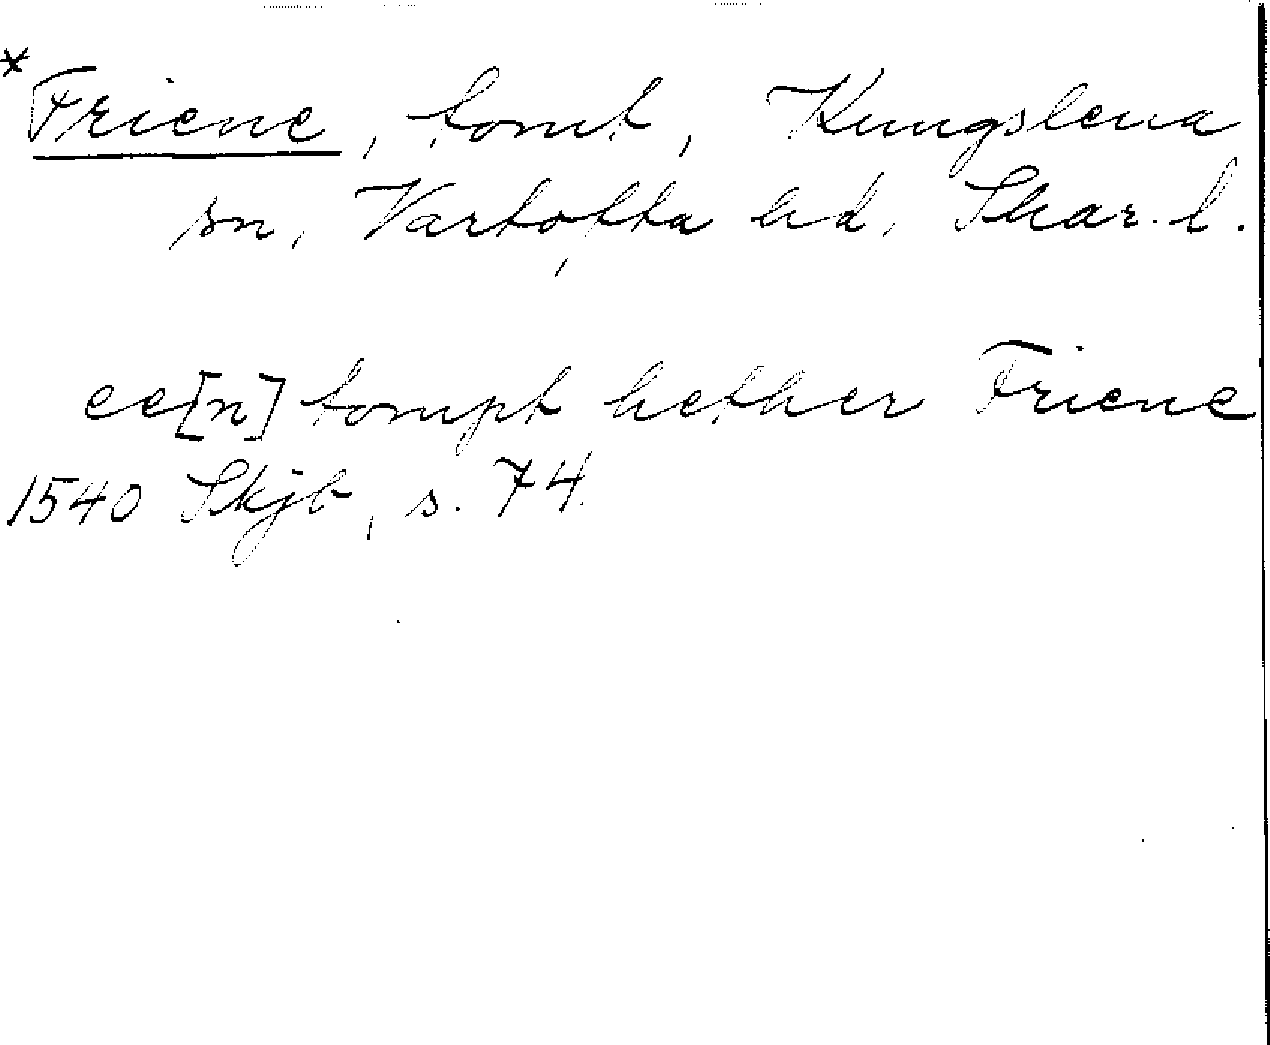 * Friene, tomt, Kungslena
sn, Vartofta hd, Skar. l.
ee[n] tompt hether Friene
1540 Skjb, s. 74.